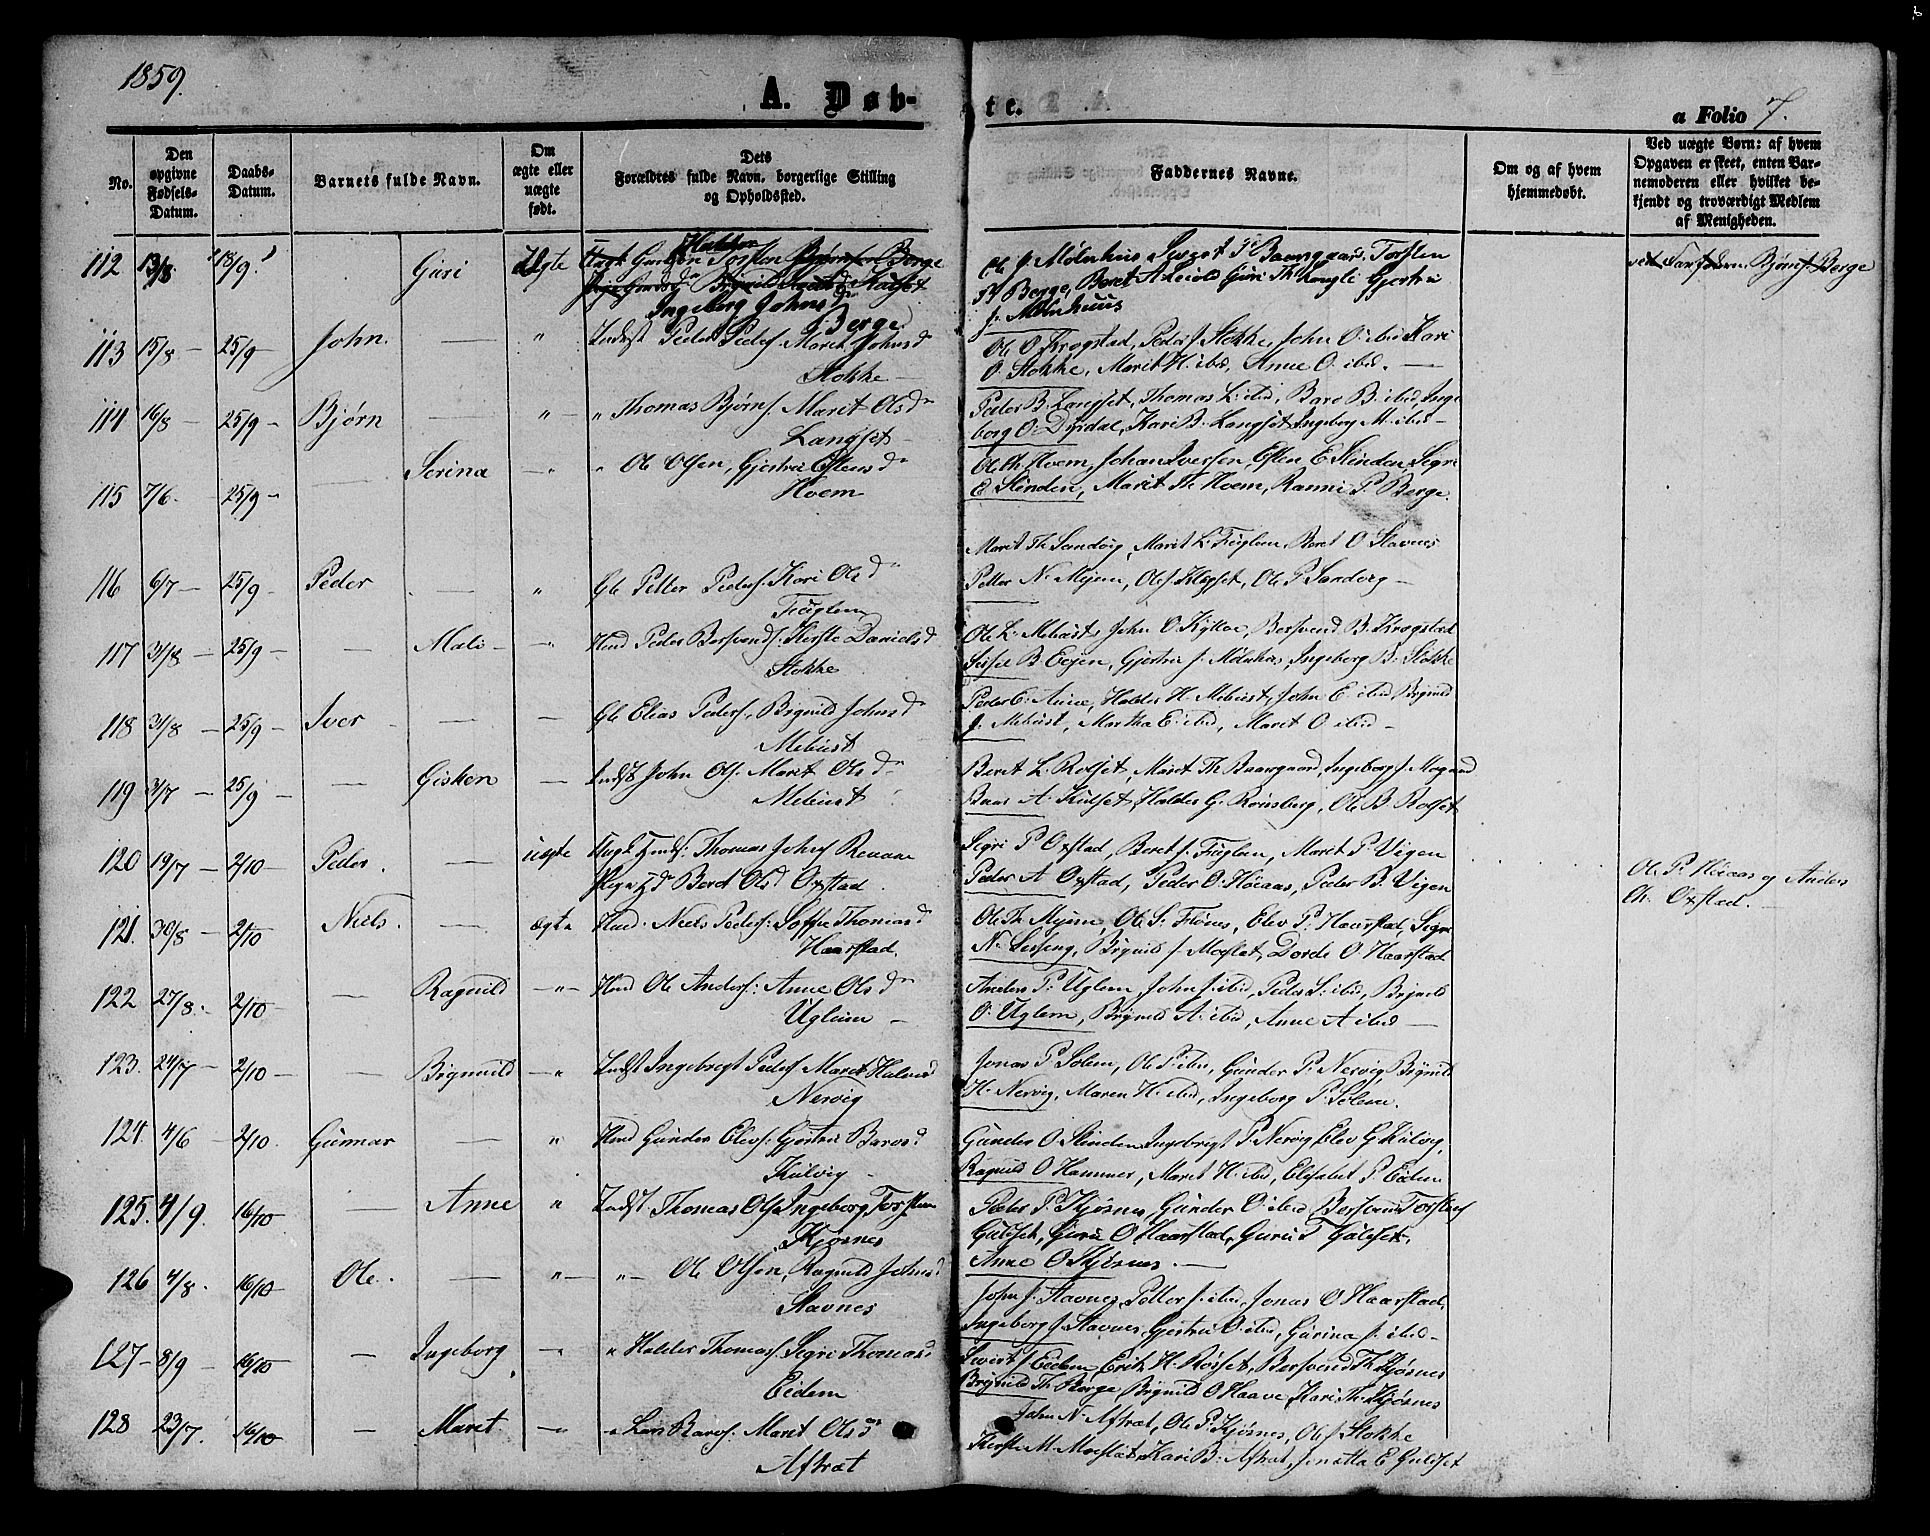 1859.
A. Døb-
te.
a Folio 7.
No.
Den opgivne Fødsels-Datum.
Daabs-Datum.
Barnets fulde Navn.
Om ægte eller uægte født.
Dets Forældres fulde Navn, borgerlige Stilling og Opholdssted.
Faddernes Navne.
Om og af hvem hjemmedøbt.
Ved uægte Børn: af hvem Opgaven er skeet, enten Barnemoderen eller hvilket bekjendt og troværdigt Medlem af Menigheden.
112 13/8 18/9 Guri Ægte
Ingeborg Johnsd
Berge
Ole J. Mølnhus Sivert P. Baargaard, Torsten
P. Berge, Beret A. Guri Th Gjertru
J. Mølnhuus
113 15/8 25/9 John. — " Indst Peder Peders. Marit Johnsd
Stokke —
Ole O. Krogstad, Peder J. Stokke, John O. ibid Kari
O. Stokke, Marit H. ibid, Anne O. ibid. —
114 16/8 25/9 Bjørn — " " Thomas Bjørns. Marit Olsdr
Langset —
Peder B. Langset, Thomas L. ibid, Baro B. ibid, Inge
borg O. Dyrdal, Kari B. Langset Ingeborg M. ibid —
115 7/6 25/9 — Serina " " Ole Olsen, Gjertru Estensdr
Hoem
Ole Th Hoem, Johan Iversen, Esten E. Slinden, Segri
E. Slinden, Marit Th Hoem, Ranni P. Berge.
Marit Th Sandvig, Marit L. Fuglem, Beret O. Stavnes
116 6/7 25/9 Peder — " Gb Petter Peders. Kari Olsdr
Fuglem
Petter N. Myrm, Ole J. Klegset, Ole P. Sandvig —
117 31/8 25/9 — Mali " Hmd Peder Bersvends. Kersti Danielsd
Stokke
Ole L. Mebust, John O. Kylloe, Bersvend B. Krogstad
Sissel B. Eegen, Gjertru J. Mølnhus, Ingeborg B. Stokke
118 31/8 25/9 Iver — — Gb Elias Peders. Brynild Johnsdr
Mebust
Peder E. Aune, Halder H. Mebust, John E. ibid Brynild
J. Mebust, Martha E. ibid, Marit O. ibid —
119 3/7 25/9 — Gisken — Indst John Ols. Marit Olsdr
Mebust
Beret L. Rolset, Marit Th Baargaard, Ingeborg J.
Baro A. Kulset, Halder G. Rønsberg, Ole B. Rolset
120 19/7 2/10 Peder. — uægte Thomas Johns Renaae
Beret Olsd Oxstad.
Segri P. Oxstad, Beret J. Fuglem, Marit P. Vigen
Peder A. Oxstad, Peder O. Høiaas, Peder B. Vigen
Ole P. Høiaas og Anders
Oxstad.
121. 30/8 2/10 Niels. — ægte Hmd. Niels Peders. Soffie Thomasd
Haarstad.
Ole Th. Myrm, Ole S. Flønes, Elev P. Haarstad, Segri
N. Sesseng, Brynild J. Mostad, Dorde O. Haarstad
122 27/8. 2/10 — Ragnild — " — Hmd Ole Anders. Anne Olsdr
Uglem —
Anders P. Uglem John J. ibid, Peder S. ibid, Brynild
O. Uglem, Brynild A. ibid, Anne A. ibid —
123. 24/7 2/10 — Brynild — " Indst Ingebrigt Peders. Marit Halvorsd
Nervig
Jonas P. Solem, Ole P. ibid, Gunder P. Nervig, Brynild
H. Nervig, Maren H. ibid, Ingeborg P. Solem.
124. 4/6 2/10. Gunnar — " Hmd Gunder Elevs. Gjertru Barosd
Kulvig —
Gunder O. Slinden Ingebrigt P. Nervig Elev G. Kulvig,
Ragnild O. Hammer, Marit H. ibid, Elisabet P. Eidem
125. 4/9. 16/10 — Anne " Indst Thomas Ols. Ingeborg Torstens
Kjøsnes
Peder P. Kjøsnes, Gunder O. ibid Bersvend Torstens
Gulset, Guru O. Haarstad, Guru T. Gulset,
Anne O. Kjøsnes. —
126 4/8. 16/10 Ole. — " — " — Ole Olsen, Ragnild Johnsd
Stavnes
John J. Stavnes, Petter J. ibid, Jonas O. Haarstad,
Ingeborg J. Stavnes, Gjertru O. ibid, Gurina J. ibid —
127 — 8/9 — 16/10 — Ingeborg — " " Halder Thomas. Segri Thomasd
Eidem
Sivert J. Eidem, Erik H. Rosset, Bersvend Th. Kjøsnes
Brynild Th Berge, Brynild O. Haave, Kari Th. Kjøsnes
128 23/7. 16/10 — Marit. — " " Lars Baros. Marit Olsdr
Aftret
John N. Aftret, Ole P. Kjøsnes, Ole J. Stokke
Kersti M. Mostad, Kari B. Aftret, Jonetta E. Gulset